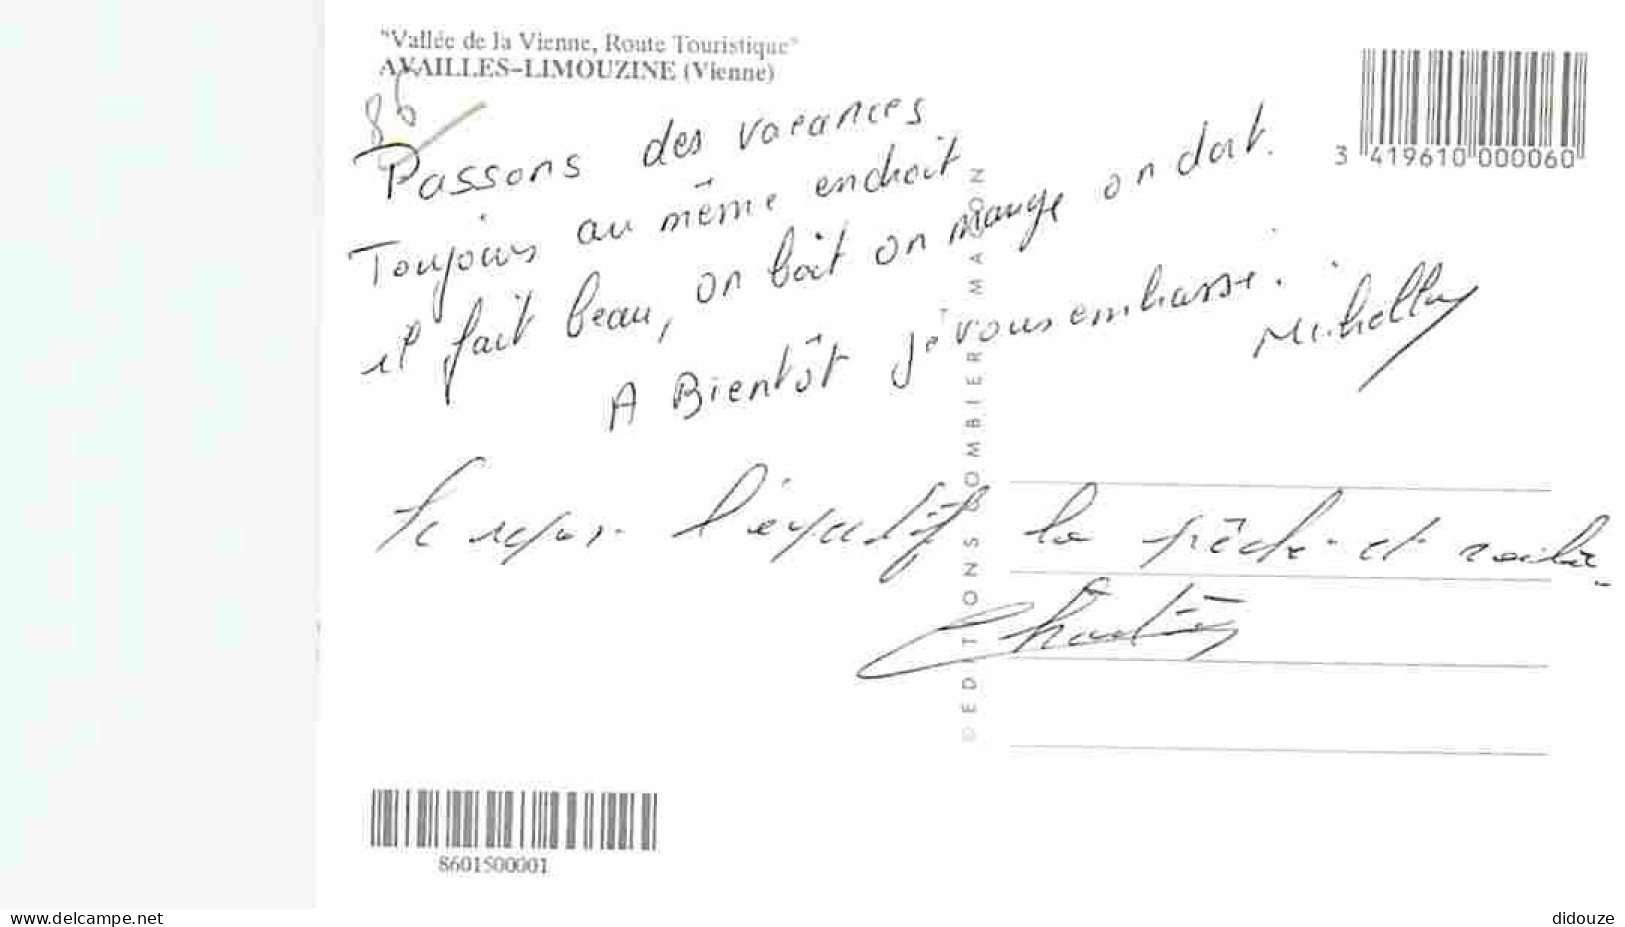 "Vallée de la Vienne, Route Touristique"
AVAILLES-LIMOUZINE (Vienne)
86
3 419610 000060
Passons des vacances
Toujours au même endroit
il fait beau, on boit on mange on dort.
A Bientôt je vous embrasse.
Le repos l'apéritif la pêche et
© EDITIONS COMBIER MACON
8601500001
www.delcampe.net
didouze